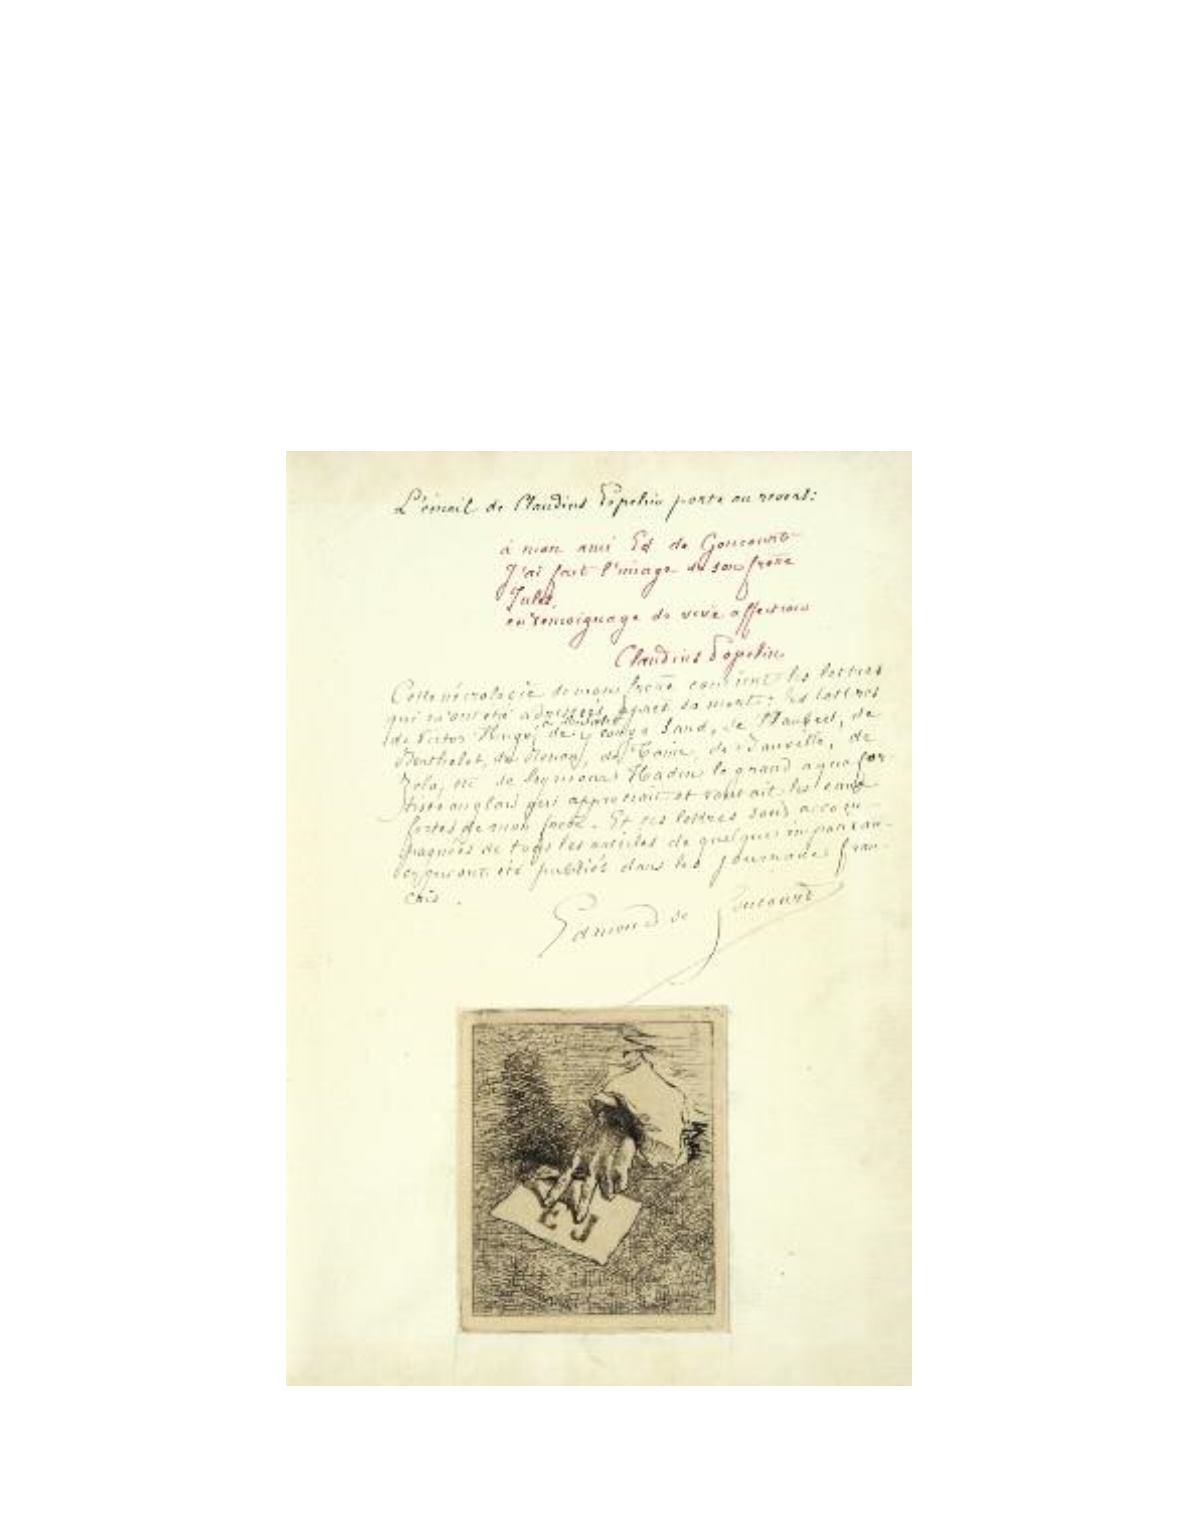 L'émail de Claudius Popelin porte au revers:
à mon ami Ed de Goncourt
J'ai fait l'image de son frère
Jules.
en témoignage de vive affection
Claudius Popelin
Cette nécrologie de mon frère contient les lettres
qui m'ont été adressées après sa mort: les lettres
de Victor Hugo, de Michelet, de George Sand, de Flaubert, de
Berthelot, de Renan, de Taine, de Banville, de
Zola, etc de Seymour Haden le grand aquafor-
tiste anglais qui appréciait et vantait les eaux
fortes de mon frère. Et ces lettres sont accom-
pagnées de tous les articles de quelque importan-
ce, qui ont été publiés dans les journaux fran-
çais.
Edmond de Goncourt
E J